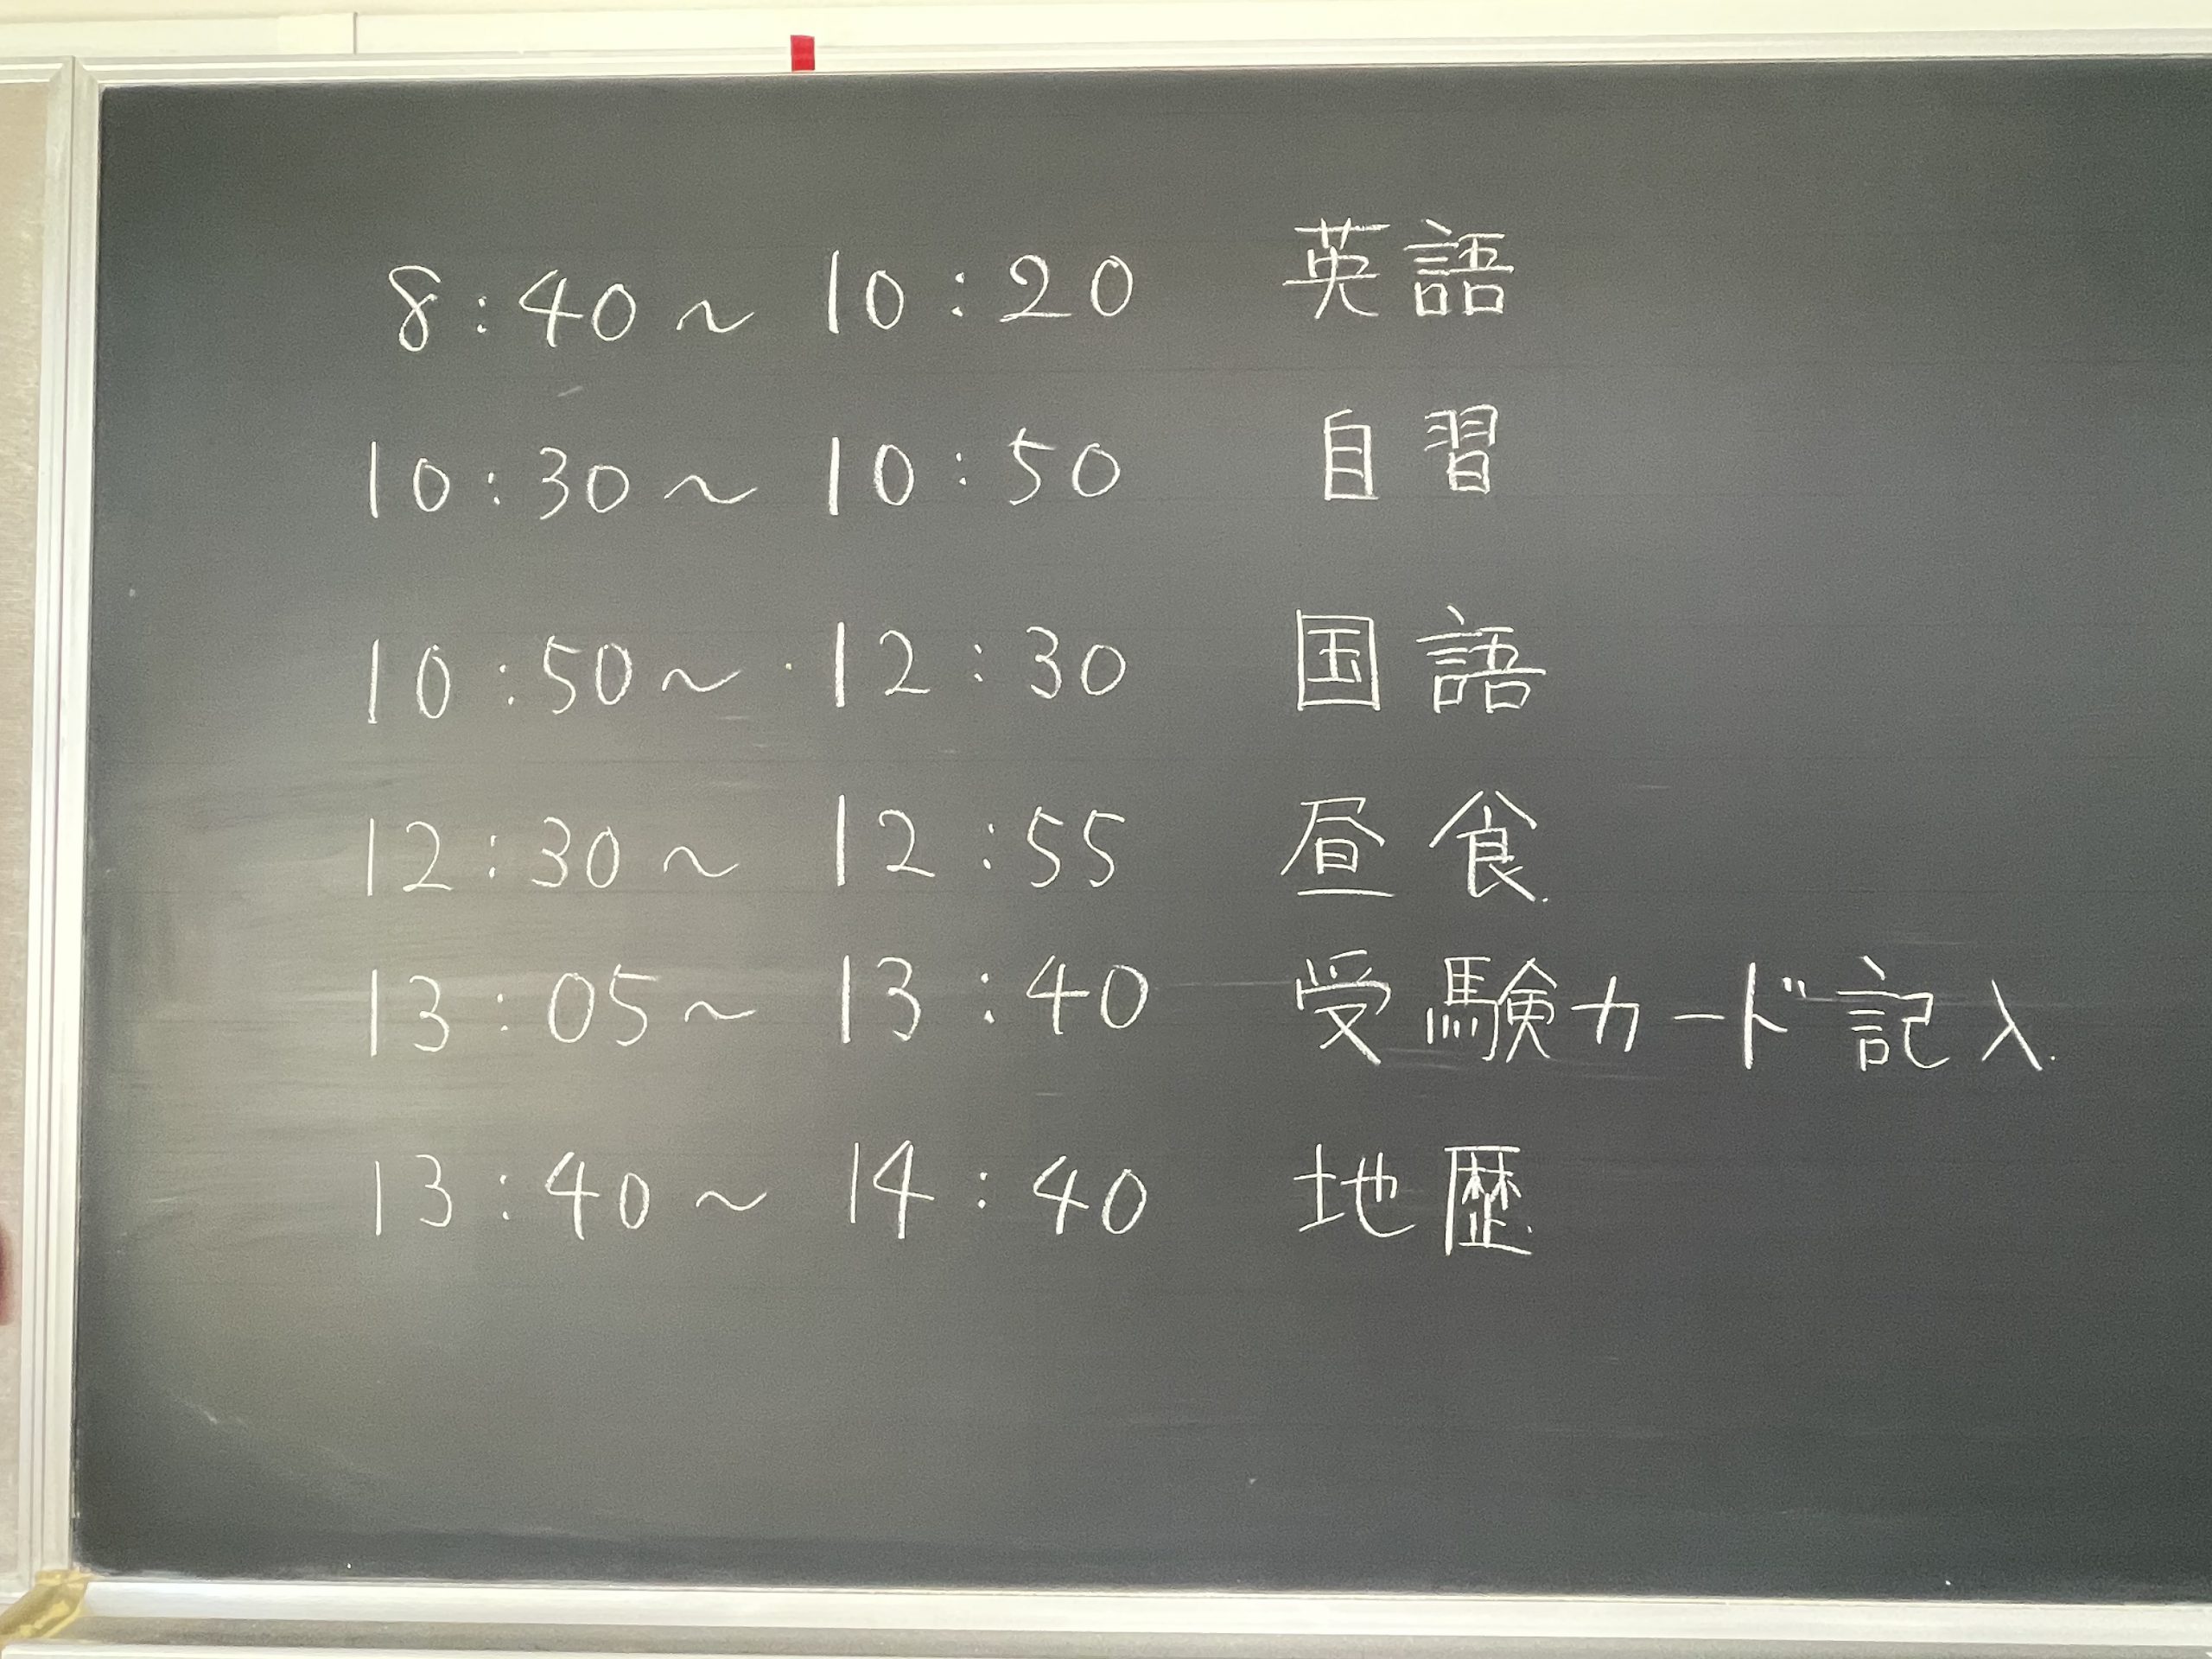 8:40～10:20 英語
10:30～10:50 自習
10:50～12:30 国語
12:30～12:55 昼食
13:05～13:40 受験カード記入
13:40～14:40 地歴